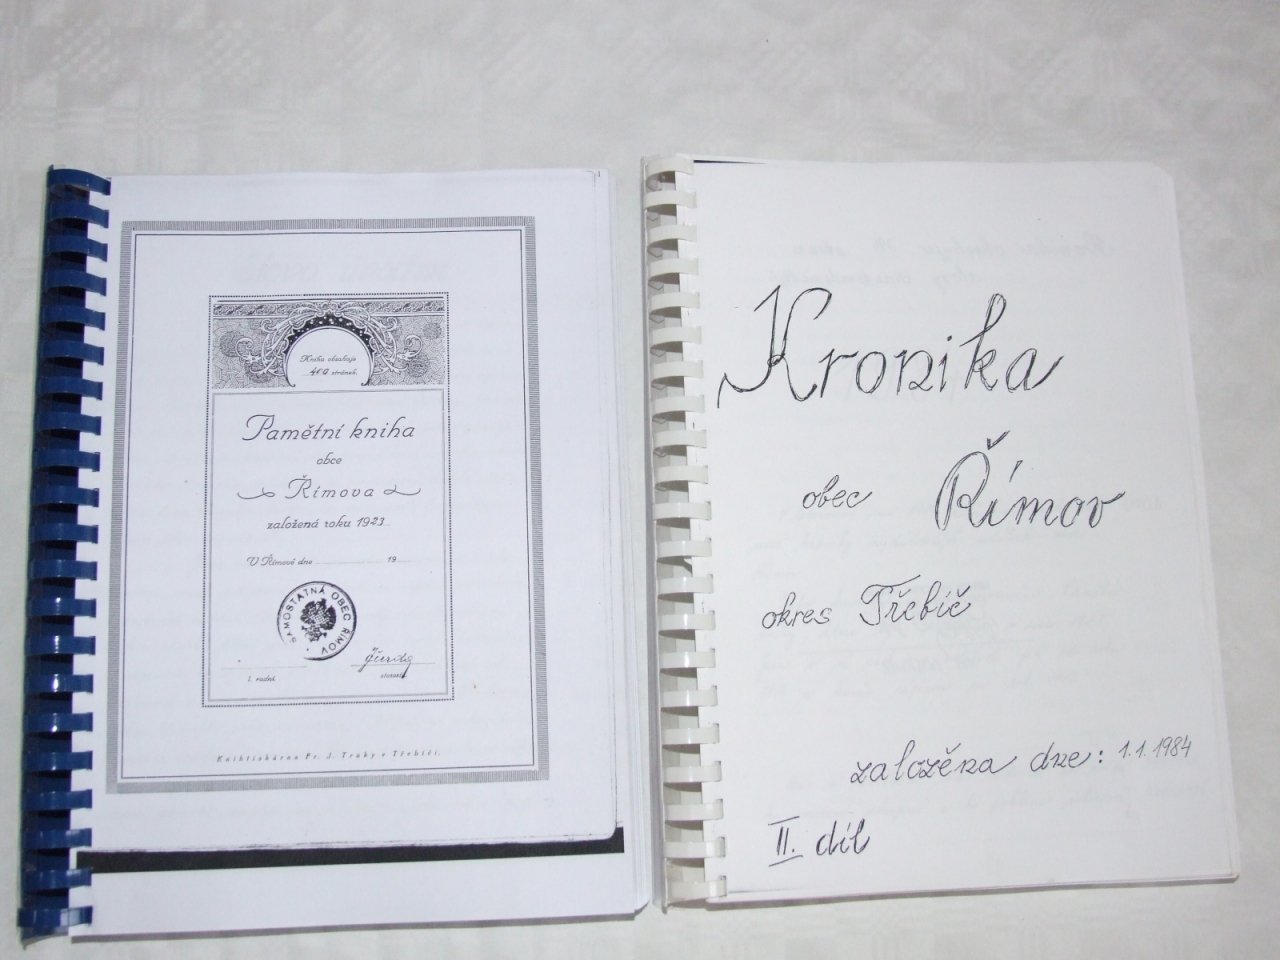 Kniha obsahuje
400 stránek.
Pamětní kniha
obce
Římova
založená roku 1923
V Římově dne 19
SAMOSTATNÁ OBEC ŘÍMOV
I. radní
starosta
Knihtiskárna Fr. J. Trnky v Třebíči.
Kronika
obec Římov
okres Třebíč
založěna dne: 1.1.1984
II. díl